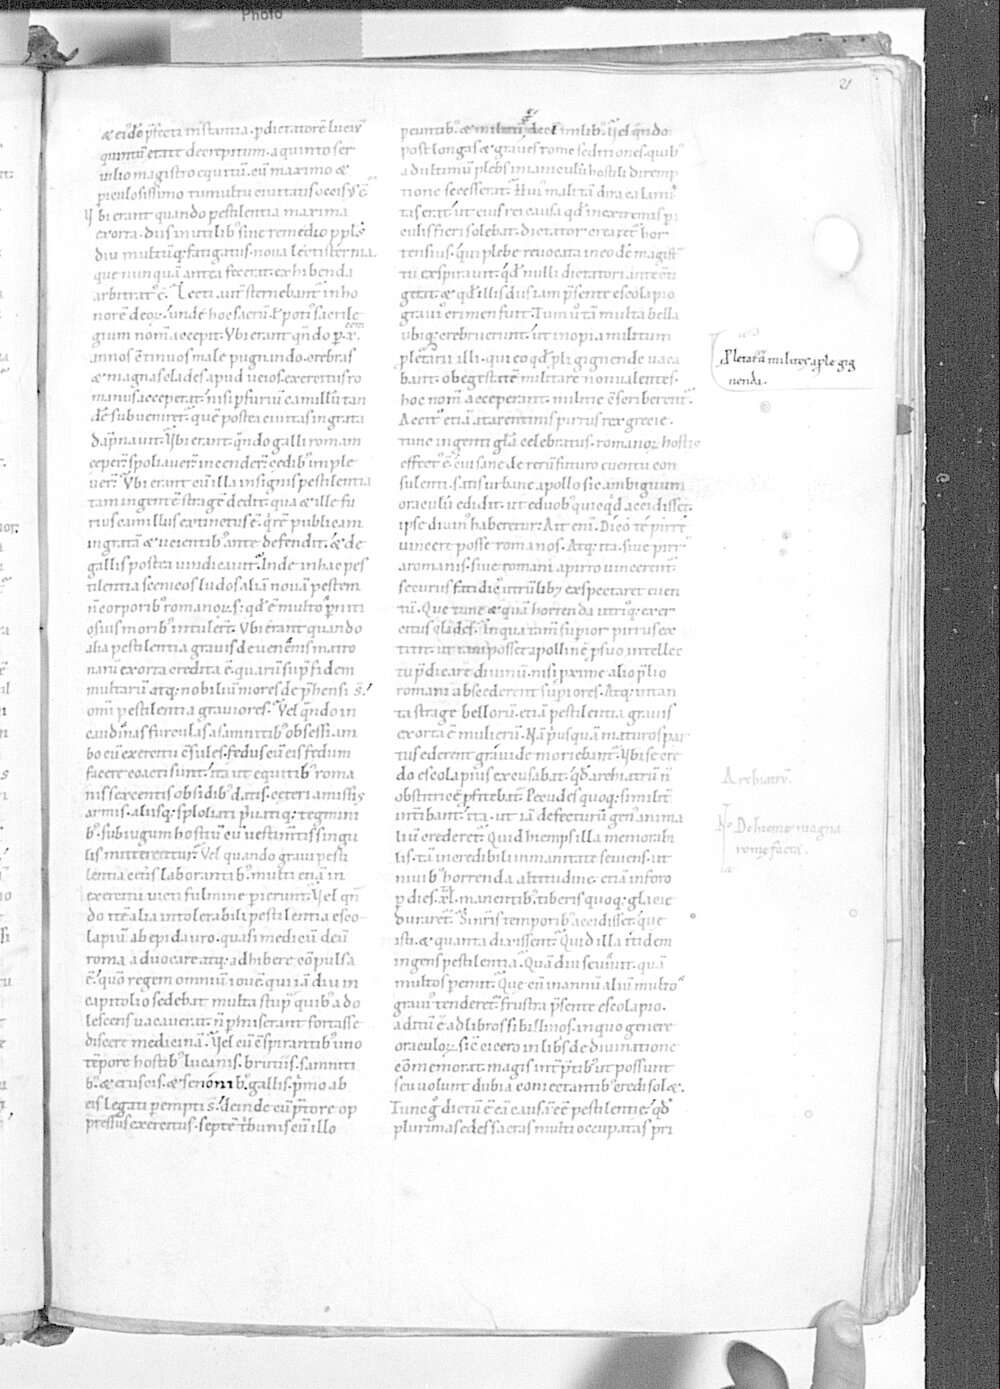 Photo
21
& eide p̄fecti instantia. p dictatorē luciū
quintū etate decrepitum. a quinto ser
uilio magistro equitū. eū maximo &
piculosissimo tumultu ciuitatis occisꝰ ē
Ubi erant quando pestilentia maxima
exorta. diis inutilibꝰ sine remedio ppl̄s
diu multūq; fatigatus. noua lectisternia
que nunquā antea fecerat. exhibenda
arbitratꝰ ē. Lecti aut̄ sternebant̄ in ho
norē deoꝝ. unde hoc sacrū. l̄ potiꝰ sacrile
gium nom̄ accepit. Ubi erant qn̄do p x. cem
annos c̄tinuos male pugnando. crebras
& magnas clades apud ueios exercitus ro
manus acceperat. nisi p furiū camillū tan
dē subueniret̄. quē postea ciuitas ingrata
dāpnauit. Ubi erant. qn̄do galli romam
ceper̄. spoliauer̄. incender̄. cedibꝰ imple
uer̄. Ubi erant cū illa insignis pestilentia
tam ingentē stragē dedit. qua & ille fu
rius camillus extinctus ē. q̄ rē publicam
ingratā & ueientibꝰ ante defendit. & de
gallis postea uindicauit. Inde in hac pes
tilentia scenicos ludos. aliā nouā pestem
n̄ corporibꝰ romanoꝝ. sꝫ qd̄ ē multo p̄niti
osius moribꝰ intulert̄. Ubi erant quando
alia pestilentia grauis de uenenis matro
narū exorta credita ē. quarū sup̄ fidem
multarū atq; nobiliū mores dep̄hensi s̄
omī pestilentia grauiores. Vel qn̄do in
caudinas furculas a samnitibꝰ obsessi am
bo cū exercitu c̄sules. fedus cū eis fedum
facere coacti sunt. ita ut equitibꝰ roma
nis sexcentis obsidibꝰ datis. ceteri amissis
armis. aliisq; spoliati p̄uatiq; tegmini
bꝰ. sub iugum hostiū cū uestim̄tis singu
lis mitterentur. Vel quando graui pesti
lentia cet̄is laborantibꝰ. multi etiā in
exercitu icti fulmine perierunt. Vel qn̄
do itē alia intolerabili pestilentia esco
lapiū ab epidauro. quasi medicū deū
roma aduocare atq; adhibere cōpulsa
ē. quō regem omniū iouē. qui iā diu in
capitolio sedebat. multa stup̄ quibꝰ ado
lescens uacauerat. n̄ p̄miserant fortasse
discere medicinā. Vel cū c̄spirantibꝰ uno
tēpore hostibꝰ lucanis. brutiis. samniti
bꝰ. & etruscis. & senonibꝰ gallis. p̄mo ab
eis legati pempti s̄. deinde cū p̄tore op
pressus exercitus. septē tribunis cū illo
peuntibꝰ. & militū decē milibꝰ. Vel qn̄do
post longas & graues rome seditiones. quibꝰ
ad ultimū plebs in ianiculū hostili diremp
tione secesserat. Huiꝰ mali tā dira calami
tas erat. ut eius rei causa. qd̄ in extremis pi
culis fieri solebat. dictator crearet̄ hor
tensius. qui plebe reuocata in eodē magist̄
tu expirauit. qd̄ nulli dictatori ante c̄ti
gerat. & qd̄ illis diis iam p̄sente escolapio
grauiꝰ crimen fuit. Tum ū tā multa bella
ubiq; crebruerunt. ut inopia militum
pletarii illi. qui eo qd̄ pli gignende uaca
bant. ob egestatē militare non ualentes.
hoc nom̄ acceperant. militie c̄scriberent̄.
Accitꝰ etiā a tarentinis pirrus rex grecie
tunc ingenti gl̄a celebratus. romanoꝝ hostis
effectꝰ ē. cui sane de rerū futuro euentu con
sulenti. satis urbane apollo sic ambiguum
oraculū edidit. ut e duobꝰ quicqd̄ accidisset.
ipse diuinꝰ haberetur. Ait enī. Dico te pirre
uincere posse romanos. Atq; ita siue pirrꝰ
a romanis. siue romani a pirro uincerent̄.
securus fatidicꝰ utrūliby exspectaret euen
tū. Que tunc & quā horrenda utriq; exer
citus clades. In qua tam̄ supior pirrus ex
titit. ut iam posset apollinē p suo intellec
tu p̄dicare diuinū. nisi p̄xime alio p̄lio
romani abscederent supiores. Atq; in tan
ta strage belloꝝ. etiā pestilentia grauis
exorta ē mulierū. Nā p̄usquā maturos par
tus ederent. grauide moriebant̄. Ubi se cre
do escolapius excusabat. qd̄ archiatrū n̄
obstetricē p̄fitebat̄. Pecudes quoq; simi l̄it̄
int̄ibant. ita. ut iā defecturū genꝰ anima
liū crederet̄. Quid hiemps illa memorabi
lis. tā incredibili inmanitate seuiens. ut
niuibꝰ horrenda altitudine etiā in foro
p dies xl. manentibꝰ. tiberis quoq; glacie
duraret̄. Si nr̄is temporibꝰ accidisset. que
isti. & quanta dixissent. Quid illa itidem
ingens pestilentia. Quā diu seuiuit. quā
multos pemit. Que cū in annū aliū multo
grauiꝰ tenderet̄. frustra p̄sente escolapio.
aditū ē ad libros sibillinos. in quo genere
oraculoꝝ. sic̄ cicero in lib̄s de diuinatione
cōmemorat. magis int̄p̄tibꝰ ut possunt
seu uolunt dubia coniectantibꝰ credi sol&.
Tunc gͦ dictū ē eā causā eē pestilentie. qd̄
plurimas edes sacras multi occupatas pri
Pletarii milites a ple gig
nenda.
Archiatrū.
No De hieme magna
rome facta.